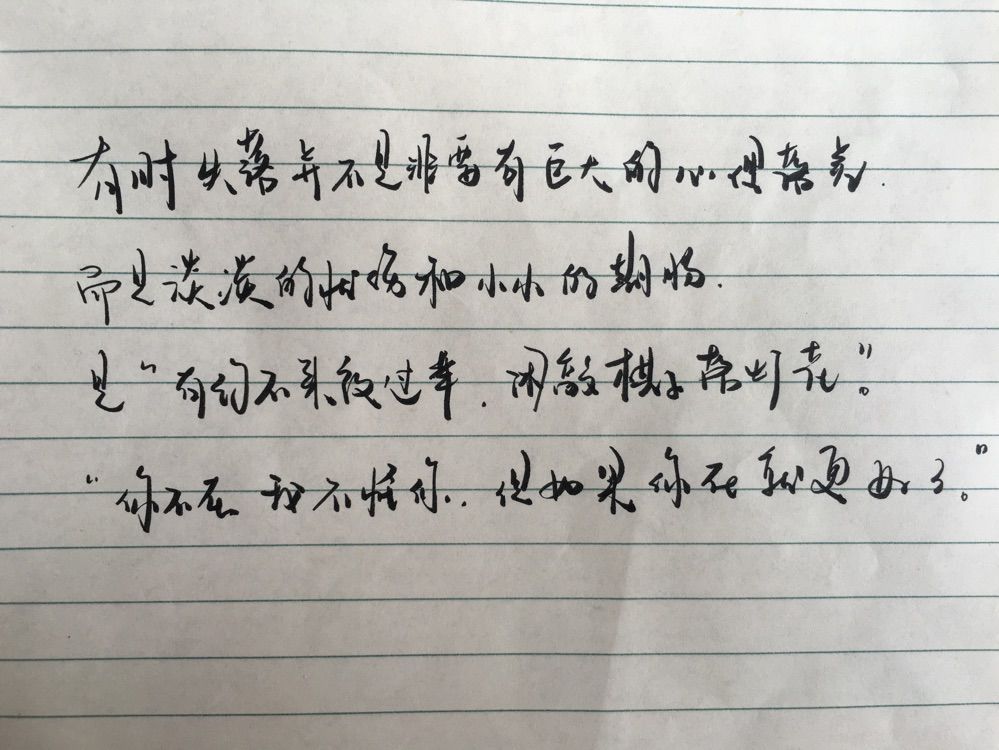 有时失落并不是非要有巨大的心里落差.
而是淡淡的忧伤和小小的期盼.
是“有约不来夜过半.闲敲棋子落灯花”。
“你不在 我不怪你.但如果你在就更好了。”